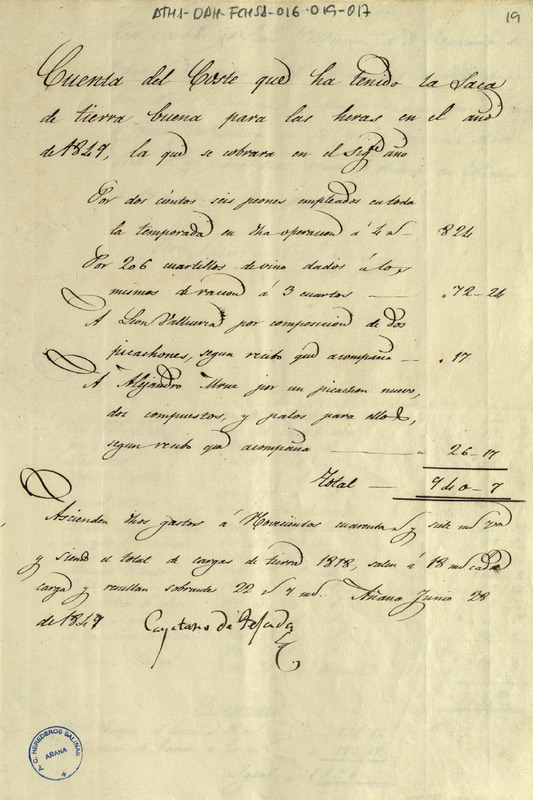 ATHA-DAH-FCHSA-016-019-017
19
Cuenta del Coste que ha tenido la Saca
de tierra buena para las heras en el año
de 1847, la que se cobrara en el sigte. año
Por dos cientos seis peones empleados en toda
la temporada en dha operacion á 4 rs — 824
Por 206 cuartillos de vino dados á los
mismos de racion á 3 cuartos — 72-24
A Leon por composicion de dos
picachones, segun recibo que acompaña — 17
A Alejandro por un picachon nuevo,
dos compuestos, y palos para ellos,
segun recibo que acompaña — 26-17
Total — 940-7
Ascienden dhos gastos á Novecientos cuarenta rs y siete mrs vn
y siendo el total de cargas de tierra 1818, salen á 18 mrs cada
carga y resultan sobrantes 22 rs y mrs. Añana Junio 28
de 1847 Cayetano de Tejada
P. C. HEREDEROS SALINAS
AÑANA